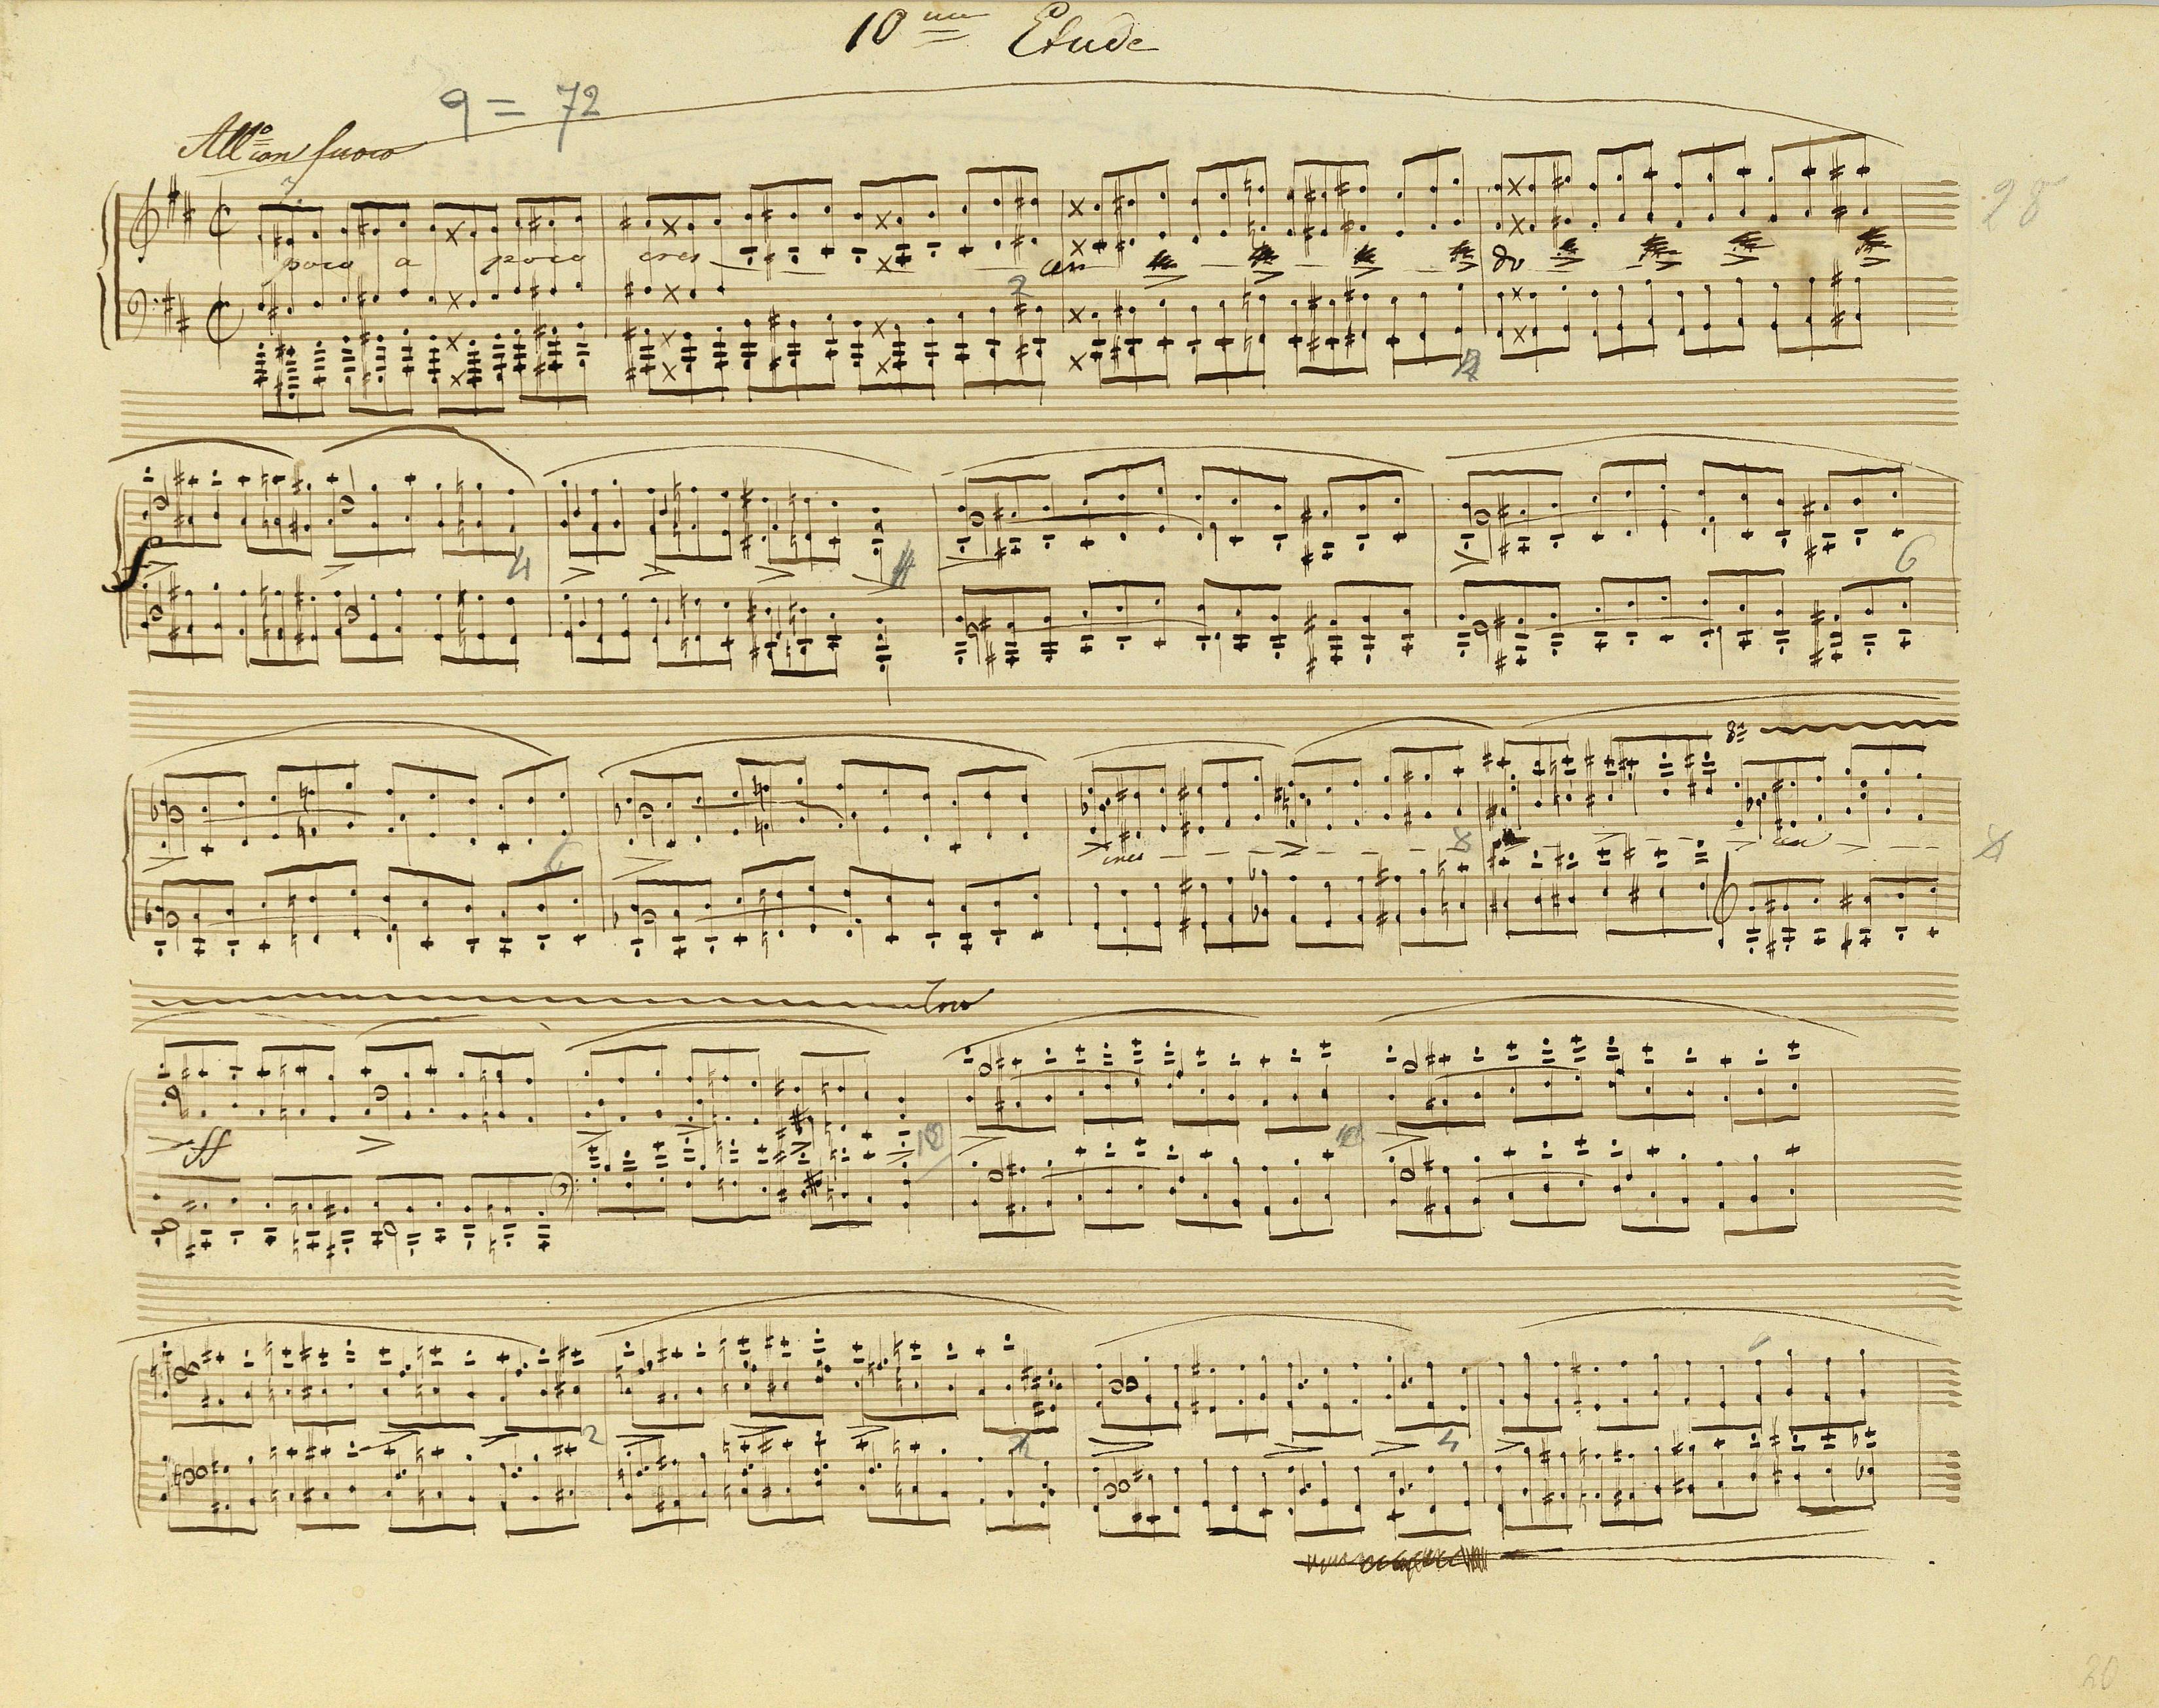 10me Etude
= 72
Allo con fuoco
28
poco a poco cres cen do
2
f
4
6
8a
cres cen
loco
ff
10
2
4
20